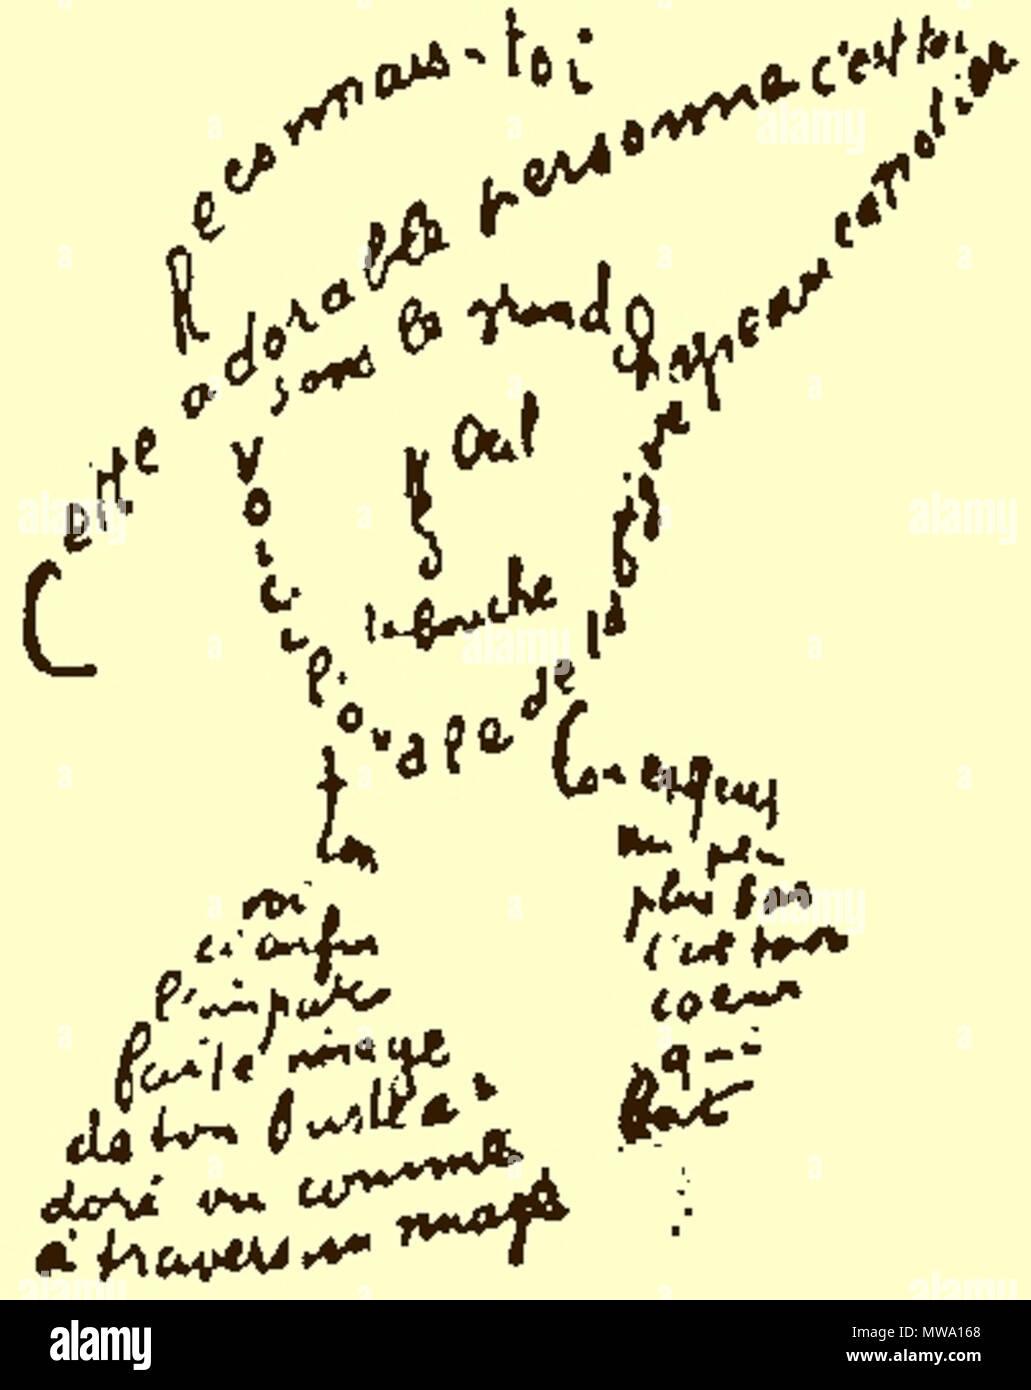 Reconnais-toi
Cette adorable personne c'est toi
sous le grand chapeau canotier
Oeil
Nez
la bouche
Voici l'ovale de ta figure
ton
cou
exquis
voi
ci enfin
l'imparfaite image
de ton buste a
doré vu comme
à travers un nuage
un peu
plus bas
c'est ton
coeur
qui
bat
alamy
Image ID: MWA168
www.alamy.com